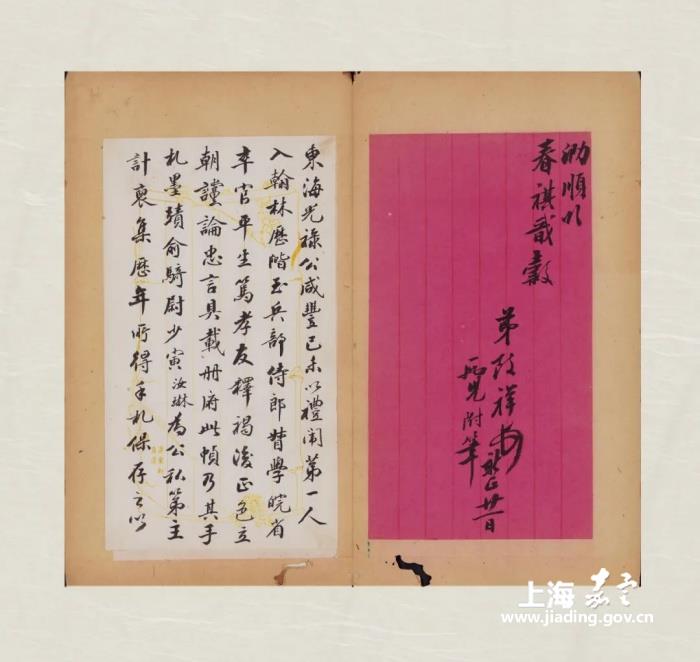 春祺戩穀
弟致祥
附筆
東海光祿公咸豐己未以禮闈第一人
入翰林歷階至兵部侍郎督學皖省
卒官平生篤孝友釋褐後正色立
朝讜論忠言具載冊府此幀乃其手
札墨蹟俞騎尉少寅汝琳為公私第主
計裒集歷年所得手札保存之以
上海嘉定
www.jiading.gov.cn